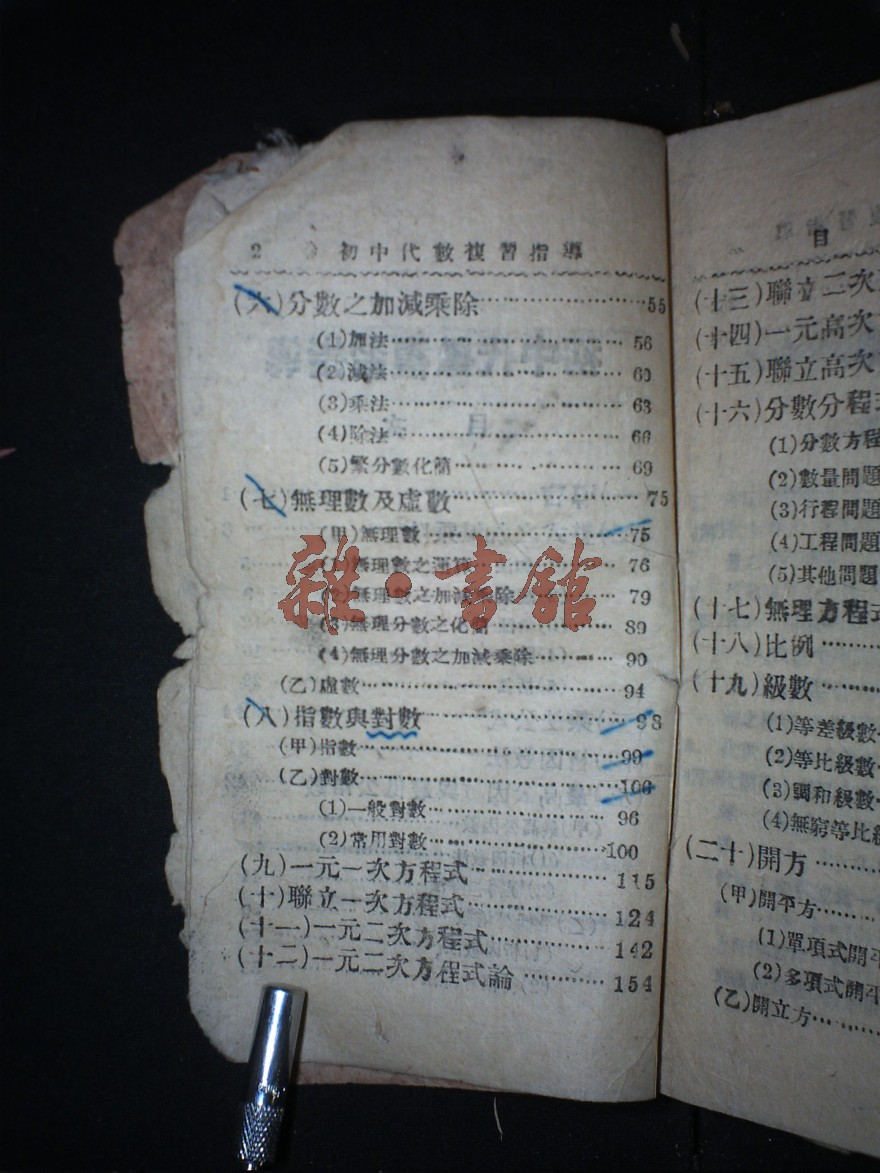 2 初中代數複習指導
(六)分數之加減乘除 55
(1)加法 56
(2)減法 60
(3)乘法 63
(4)除法 66
(5)繁分數化簡 69
(七)無理數及虛數 75
(甲)無理數 75
(1)無理數之運算 76
(2)無理數之加減乘除 79
(3)無理分數之化簡 89
(4)無理分數之加減乘除 90
(乙)虛數 94
(八)指數與對數 98
(甲)指數 99
(乙)對數 106
(1)一般對數 96
(2)常用對數 100
(九)一元一次方程式 115
(十)聯立一次方程式 124
(十一)一元二次方程式 142
(十二)一元二次方程式論 154
雜·書館
目
(十三)聯立二次
(十四)一元高次
(十五)聯立高次
(十六)分數分程
(1)分數方程
(2)數量問題
(3)行程問題
(4)工程問題
(5)其他問題
(十七)無理方程式
(十八)比例
(十九)級數
(1)等差級數
(2)等比級數
(3)調和級數
(4)無窮等比
(二十)開方
(甲)開平方
(1)單項式開平
(2)多項式開平
(乙)開立方